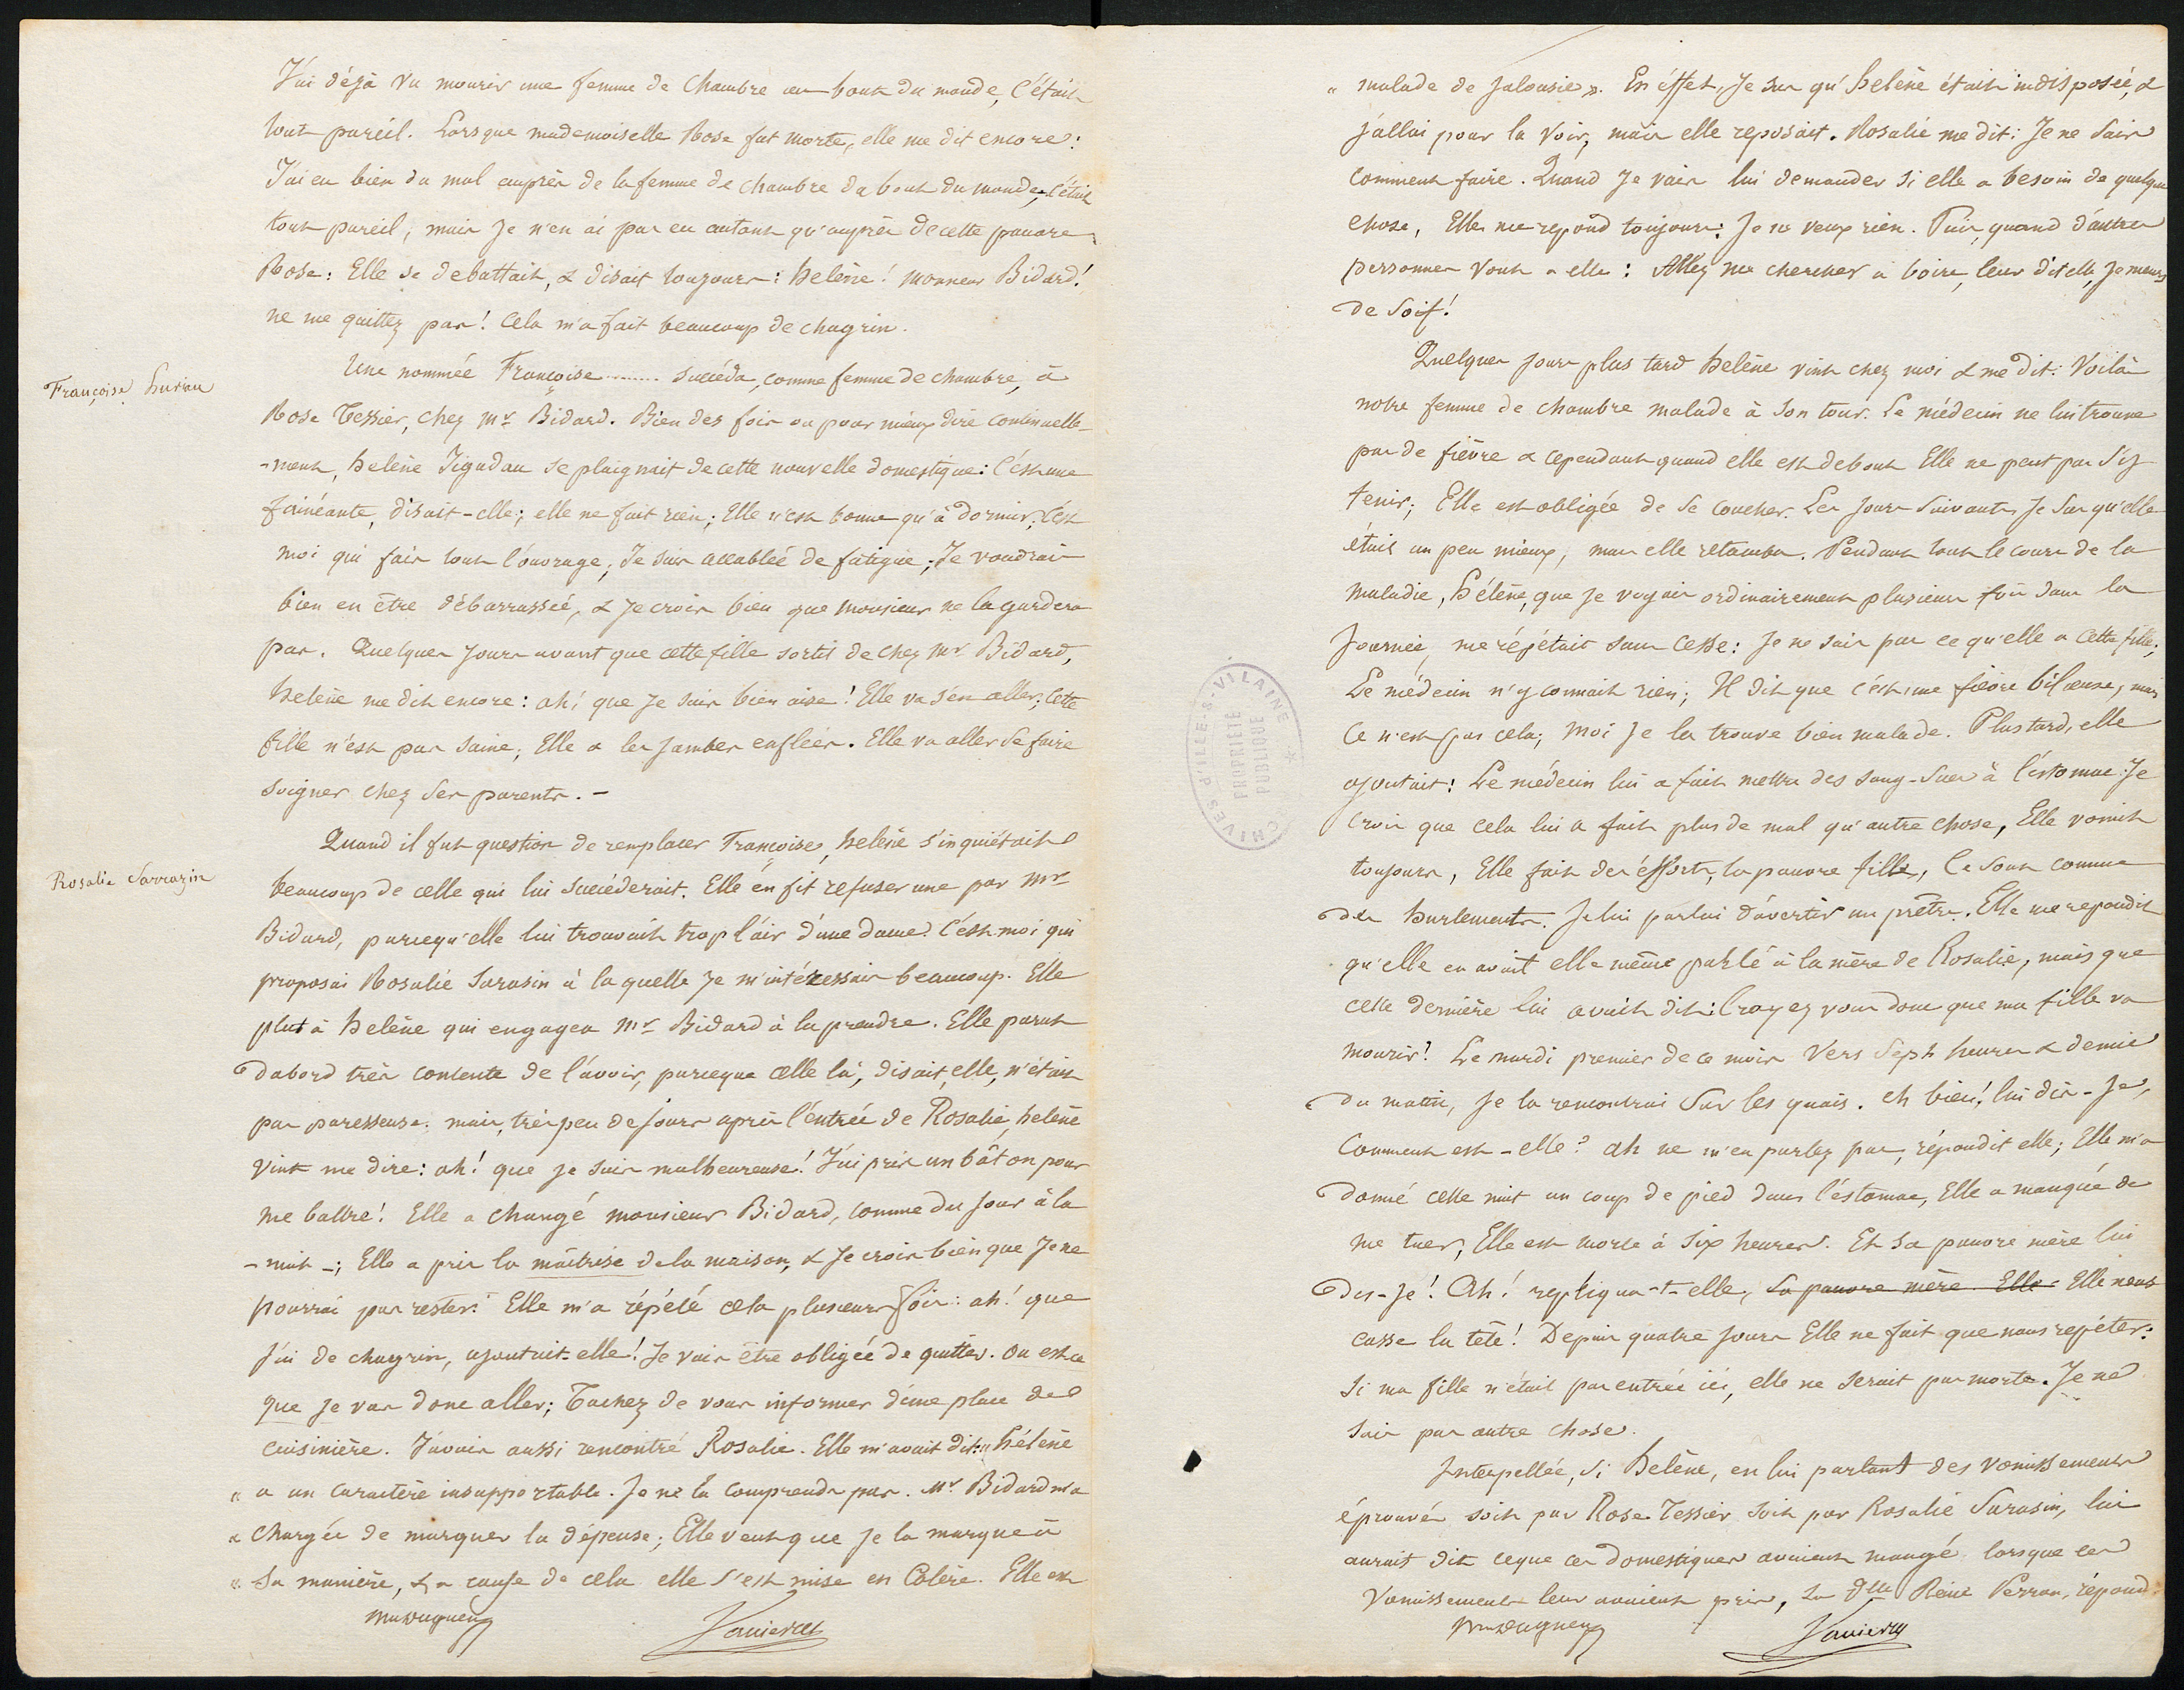 J'ai déjà vu mourir une femme de chambre au bout du monde, C'était
tout pareil. Lorsque mademoiselle Rose fut morte, elle me dit encore:
J'ai eu bien du mal auprès de la femme de chambre du bout du monde, c'était
tout pareil, mais Je n'en ai pas eu autant qu'auprès de cette pauvre
Rose: Elle se debattait, & disait toujours: heleine! monsieur Bidard!
ne me quittez pas! Cela m'a fait beaucoup de chagrin.
Françoise huriau
Une nommée Françoise ........ succéda, comme femme de chambre, à
Rose Tessier, chez Mr Bidard. Bien des fois ou pour mieux dire continuelle-
-ment, heleine Jigadau se plaignait de cette nouvelle domestique: C'est une
fainéante, disait-elle; elle ne fait rien; Elle n'est bonne qu'à dormir; C'est
moi qui fais tout l'ouvrage; Je suis accablée de fatigue; Je voudrais
bien en être débarrassée, & Je crois bien que monsieur ne la gardera
pas. Quelques jours avant que cette fille sortit de chez Mr Bidard,
heleine me dit encore: ah! que Je suis bien aise! Elle va s'en aller; Cette
fille n'est pas saine; Elle a les jambes enflées. Elle va aller se faire
soigner chez ses parents. -
Rosalie Sarrazin
Quand il fut question de remplacer Françoise, heleine s'inquiétait
beaucoup de celle qui lui succéderait. Elle en fit refuser une par Mr
Bidard, parcequ'elle lui trouvait trop l'air d'une dame. C'est moi qui
proposai Rosalie Sarasin à laquelle Je m'intéressais beaucoup. Elle
plut à heleine qui engagea Mr Bidard à la prendre. Elle parut
dabord très contente de l'avoir, parceque celle là, disait elle, n'était
pas paresseuse. mais, très peu de jours après l'entrée de Rosalie, heleine
vint me dire: ah! que je suis malheureuse! J'ai pris un bâton pour
me battre! Elle a changé monsieur Bidard, comme du jour à la
- nuit -; Elle a pris la maîtrise de la maison, & Je crois bien que Je ne
pourrai pas rester. Elle m'a répété cela plusieurs fois: ah! que
j'ai de chagrin, ajoutait-elle! Je vais être obligée de quitter. Ou est ce
que je vas donc aller; Tachez de vous informer d'une place de
cuisinière. J'avais aussi rencontré Rosalie. Elle m'avait dit: « hélène
« a un caractère insupportable. Je ne la comprends pas. Mr Bidard m'a
« chargée de marquer la dépense; Elle veut que je la marque à
« sa manière, & a cause de cela elle s'est mise en Colère. Elle est
« malade de jalousie ». En éffet, Je sus qu'helène était indisposée, &
j'allai pour la voir, mais elle reposait. Rosalie me dit: Je ne sais
comment faire. Quand Je vais lui demander si elle a besoin de quelque
chose, Elle me repond toujours: Je ne veux rien. Puis, quand d'autres
personnes vont a elle: Allez me chercher à boire, leur dit elle, Je meurs
de soif!
Quelques jours plus tard helène vint chez moi & me dit: Voilà
notre femme de chambre malade à son tour. Le médecin ne lui trouve
pas de fièvre & cependant quand elle est debout Elle ne peut pas s'y
tenir; Elle est obligée de se coucher. Les jours suivants, Je sus qu'elle
était un peu mieux, mais elle retomba. Pendant tout le cours de la
maladie, hélène, que je voyais ordinairement plusieurs fois dans la
journée, me répétait sans cesse: Je ne sais pas ce qu'elle a cette fille;
Le médecin n'y connait rien; Il dit que c'est une fièvre bilieuse, mais
Ce n'est pas cela; moi je la trouve bien malade. Plus tard, elle
ajoutait: Le médecin lui a fait mettre des sang-sues à l'estomac. Je
Crois que cela lui a fait plus de mal qu'autre chose, Elle vomit
toujours, Elle fait des éfforts, la pauvre fille, Ce sont comme
des hurlements. Je lui parlai d'avertir un prêtre. Elle me repondit
qu'elle en avait elle même parlé à la mère de Rosalie, mais que
cette dernière lui avait dit: Croyez vous donc que ma fille va
mourir? Le mardi premier de ce mois vers sept heures & demie
du matin, je la rencontrai sur les quais. eh bien! lui dis-je,
Comment est-elle? ah ne m'en parlez pas, répondit elle; Elle m'a
donné cette nuit un coup de pied dans l'estomac, Elle a manqué de
me tuer, Elle est morte à six heures. Et sa pauvre mère lui
dis-je! Ah! repliqua-t-elle, sa pauvre mère Elle Elle nous
casse la tête! Depuis quatre jours Elle ne fait que nous repéter:
si ma fille n'était pas entrée ici, elle ne serait pas morte. Je ne
sais pas autre chose.
Interpellée, si helène, en lui parlant des vomissements
éprouvés soit par Rose Tessier soit par Rosalie Sarasin, lui
aurait dit ceque ces domestiques avaient mangé lorsque ces
vomissements leur avaient pris, la dlle Reine Perron, répond
ARCHIVES d'ILLE-&-VILAINE
PROPRIÉTÉ
PUBLIQUE